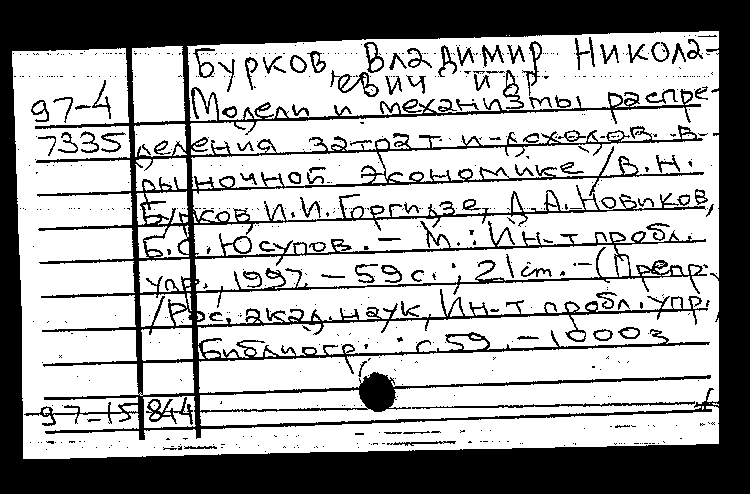 Бурков, Владимир Никола-
евич и др.
97-4 Модели и механизмы распре-
7335 деления затрат и доходов в
рыночной экономике / В.Н.
Бурков, И.И. Горгидзе, Д.А. Новиков,
Б.С. Юсупов. – М.: Ин-т пробл.
упр., 1997. – 59 с.; 21 см. – (Препр.
/ Рос. акад. наук, Ин-т пробл. упр.,
Библиогр.: с. 59. – 1000 э
97-15844